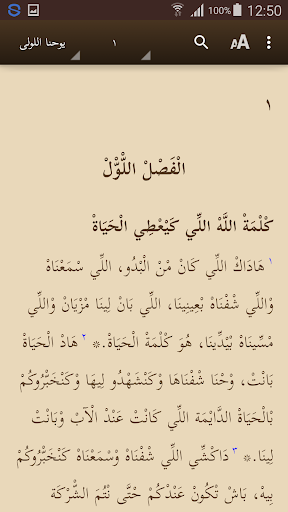 100% 12:50
يوحنا اللولى ١ AA
١
الْفَصْلْ اللّْوّْلْ
كْلْمَةْ اللَّهْ اللِّي كَيْعْطِي الْحَيَاةْ
١ هَادَاكْ اللِّي كَانْ مْنْ الْبْدُو، اللِّي سْمَعْنَاهْ
وْاللِّي شْفْنَاهْ بْعِينِينَا، اللِّي بَانْ لِينَا مْزْيَانْ وْاللِّي
مْسِّينَاهْ بْيْدِّينَا، هُوَ كْلْمَةْ الْحَيَاةْ.* ٢ هَادْ الْحَيَاةْ
بَانْتْ، وْحْنَا شْفْنَاهَا وْكَنْشَهْدُو لِيهَا وْكَنْخَبّْرُوكُمْ
بْالْحَيَاةْ الدَّايْمَةْ اللِّي كَانْتْ عَنْدْ الْآبْ وْبَانْتْ
لِينَا.* ٣ دَاكْشِّي اللِّي شْفْنَاهْ وْسْمَعْنَاهْ كَنْخَبّْرُوكُمْ
بِيهْ، بَاشْ تْكُونْ عَنْدْكُمْ حْتَّى نْتُمَ الشّْرْكَةْ